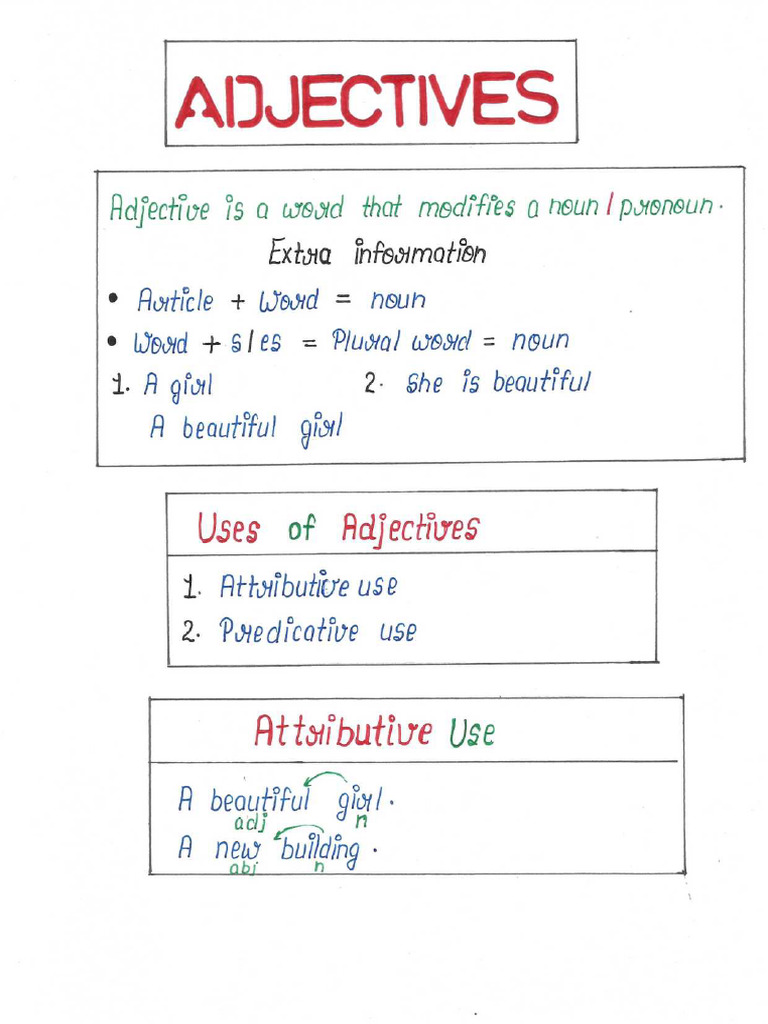 ADJECTIVES
Adjective is a word that modifies a noun / pronoun.
Extra information
• Article + Word = noun
• Word + s/es = Plural word = noun
1. A girl 2. She is beautiful
A beautiful girl
Uses of Adjectives
1. Attributive use
2. Predicative use
Attributive Use
A beautiful girl.
adj n
A new building.
abj n